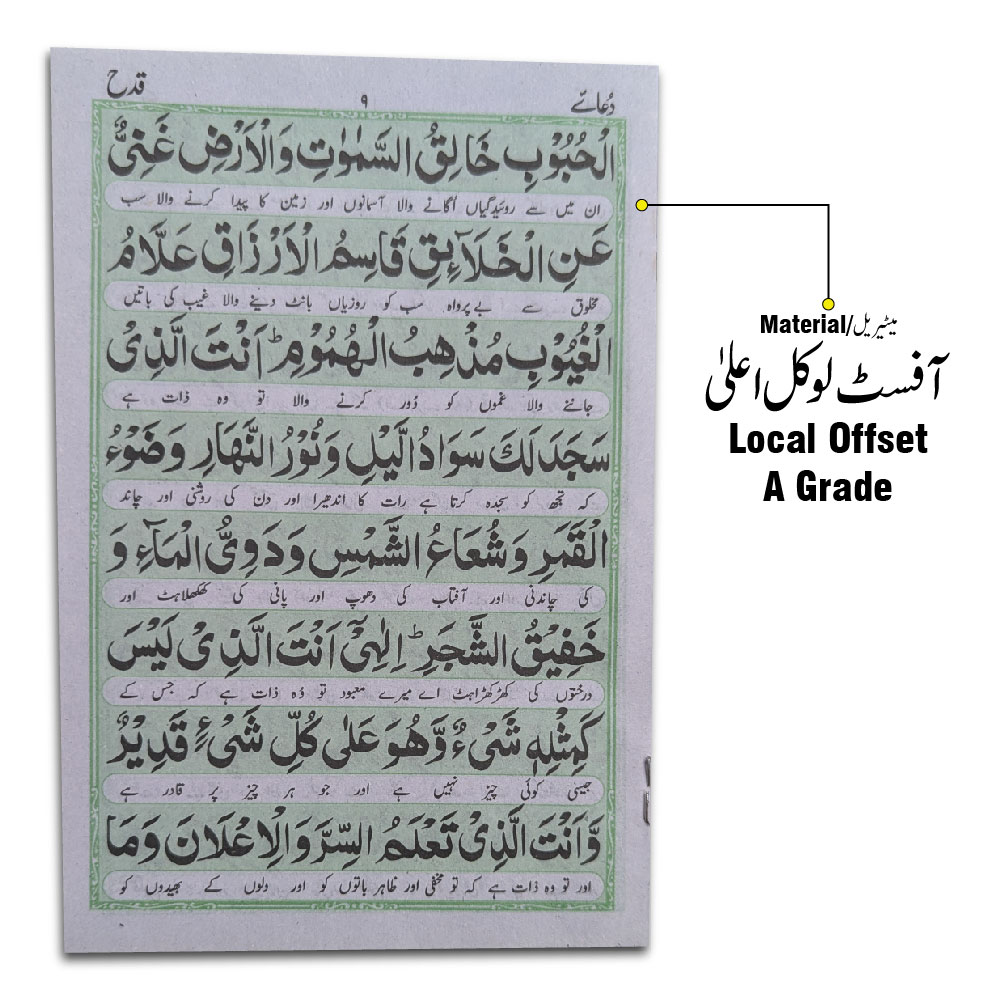 دُعائے ۹ قدح
الْحُبُوْبِ خَالِقُ السَّمٰوٰتِ وَالْاَرْضِ غَنِیٌّ
ان میں سے روئیدگیاں اُگانے والا آسمانوں اور زمین کا پیدا کرنے والا سب
عَنِ الْخَلَآئِقِ قَاسِمُ الْاَرْزَاقِ عَلَّامُ
مخلوق سے بے پرواہ سب کو روزیاں بانٹ دینے والا غیب کی باتیں
الْغُیُوْبِ مُذْهِبُ الْهُمُوْمِ ؕ اَنْتَ الَّذِیْ
جاننے والا غموں کو دُور کرنے والا تو وہ ذات ہے
سَجَدَ لَكَ سَوَادُ الَّیْلِ وَنُوْرُ النَّهَارِ وَضَوْءُ
کہ تجھ کو سجدہ کرتا ہے رات کا اندھیرا اور دن کی روشنی اور چاند
الْقَمَرِ وَشُعَاعُ الشَّمْسِ وَدَوِیُّ الْمَآءِ وَ
کی چاندنی اور آفتاب کی دھوپ اور پانی کی کھلکھلاہٹ اور
خَفِیْقُ الشَّجَرِ ؕ اِلٰهِیْ اَنْتَ الَّذِیْ لَیْسَ
درختوں کی کھڑکھڑاہٹ اے میرے معبود تو وُہ ذات ہے کہ جس کے
كَمِثْلِهٖ شَیْءٌ وَّهُوَ عَلٰی كُلِّ شَیْءٍ قَدِیْرٌ
جیسی کوئی چیز نہیں ہے اور جو ہر چیز پر قادر ہے
وَّاَنْتَ الَّذِیْ تَعْلَمُ السِّرَّ وَالْاِعْلَانَ وَمَا
اور تو وہ ذات ہے کہ تو مخفی اور ظاہر باتوں کو اور دلوں کے بھیدوں کو
Material/میٹیریل
آفسٹ لوکل اعلیٰ
Local Offset
A Grade